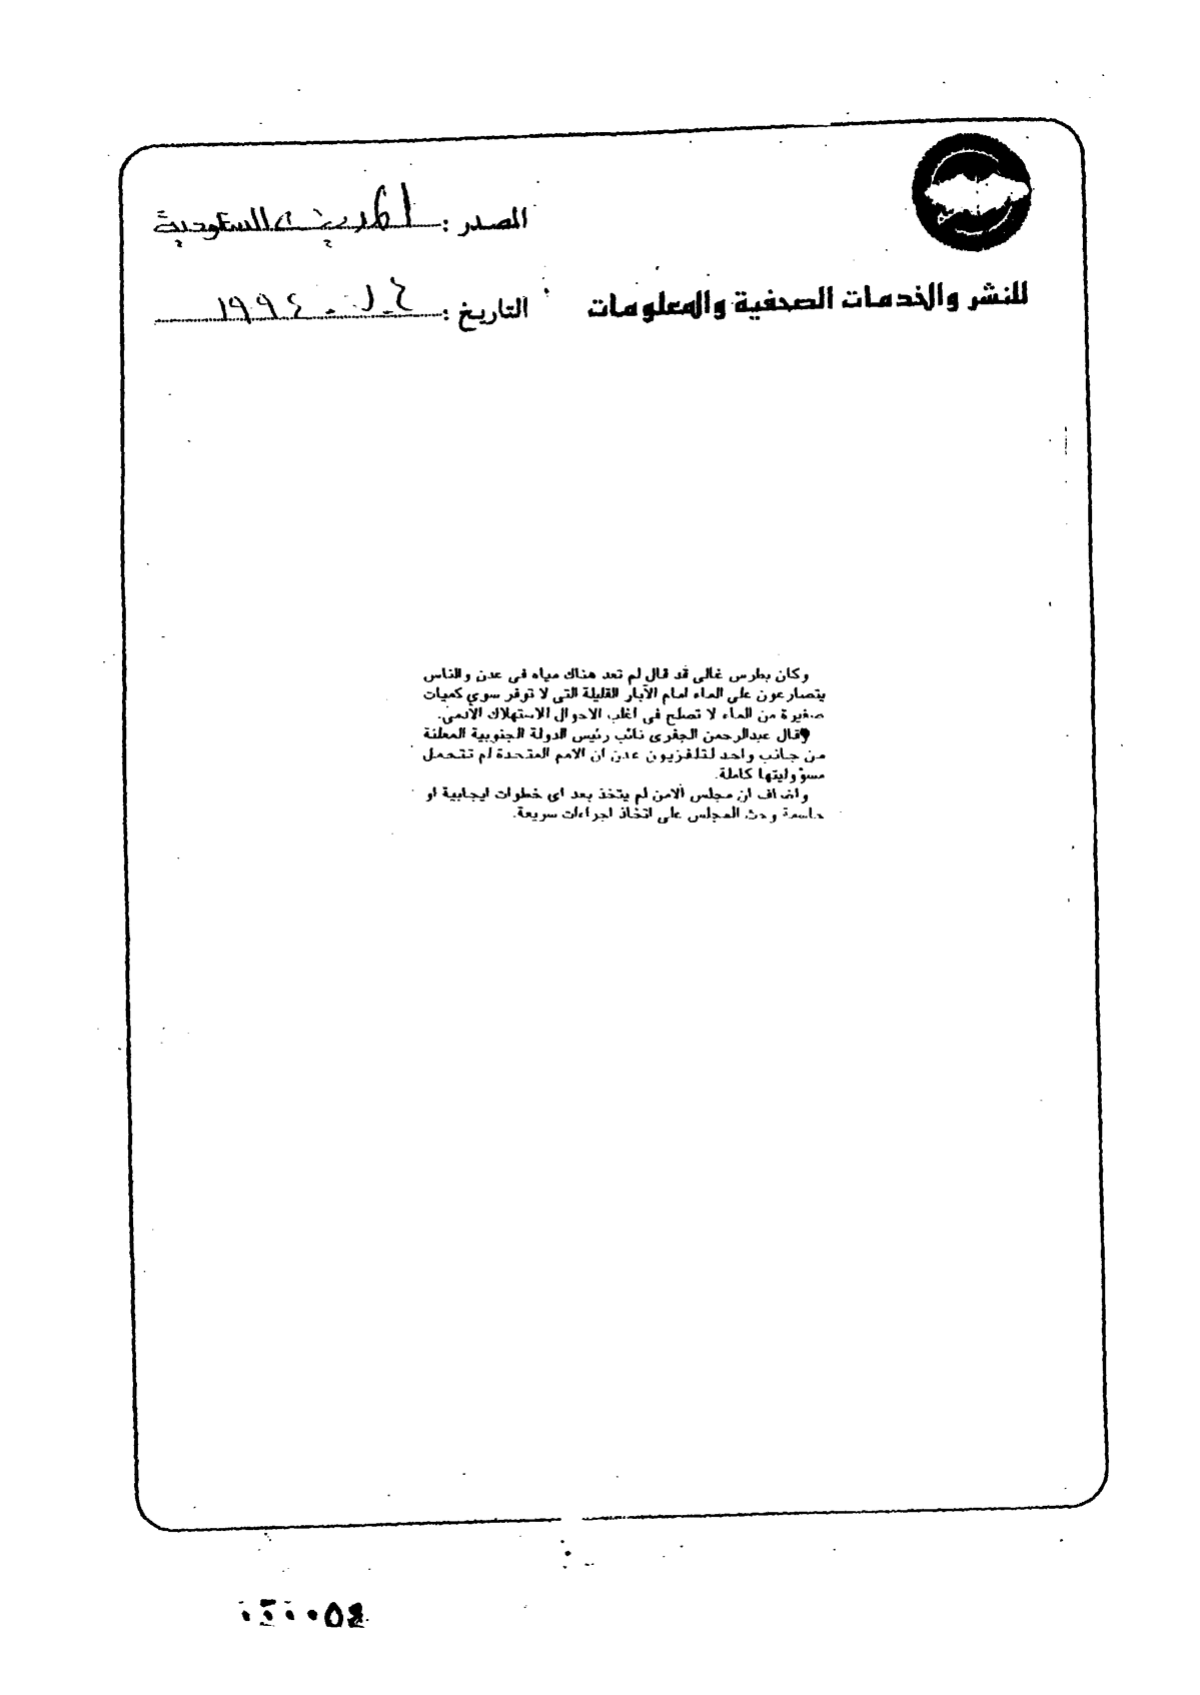 المصدر : المدينة السعودية
للنشر والخدمات الصحفية والمعلومات
التاريخ : ١٩٩٤
وكان بطرس غالى قد قال لم تعد هناك مياه فى عدن والناس
يتصارعون على الماء امام الآبار القليلة التى لا توفر سوى كميات
صغيرة من الماء لا تصلح فى اغلب الاحوال الاستهلاك الآدمى.
وقال عبدالرحمن الجفرى نائب رئيس الدولة الجنوبية المعلنة
من جانب واحد لتلفزيون عدن ان الامم المتحدة لم تتحمل
مسؤوليتها كاملة.
واضاف ان مجلس الامن لم يتخذ بعد اى خطوات ايجابية او
حاسمة وحث المجلس على اتخاذ اجراءات سريعة.